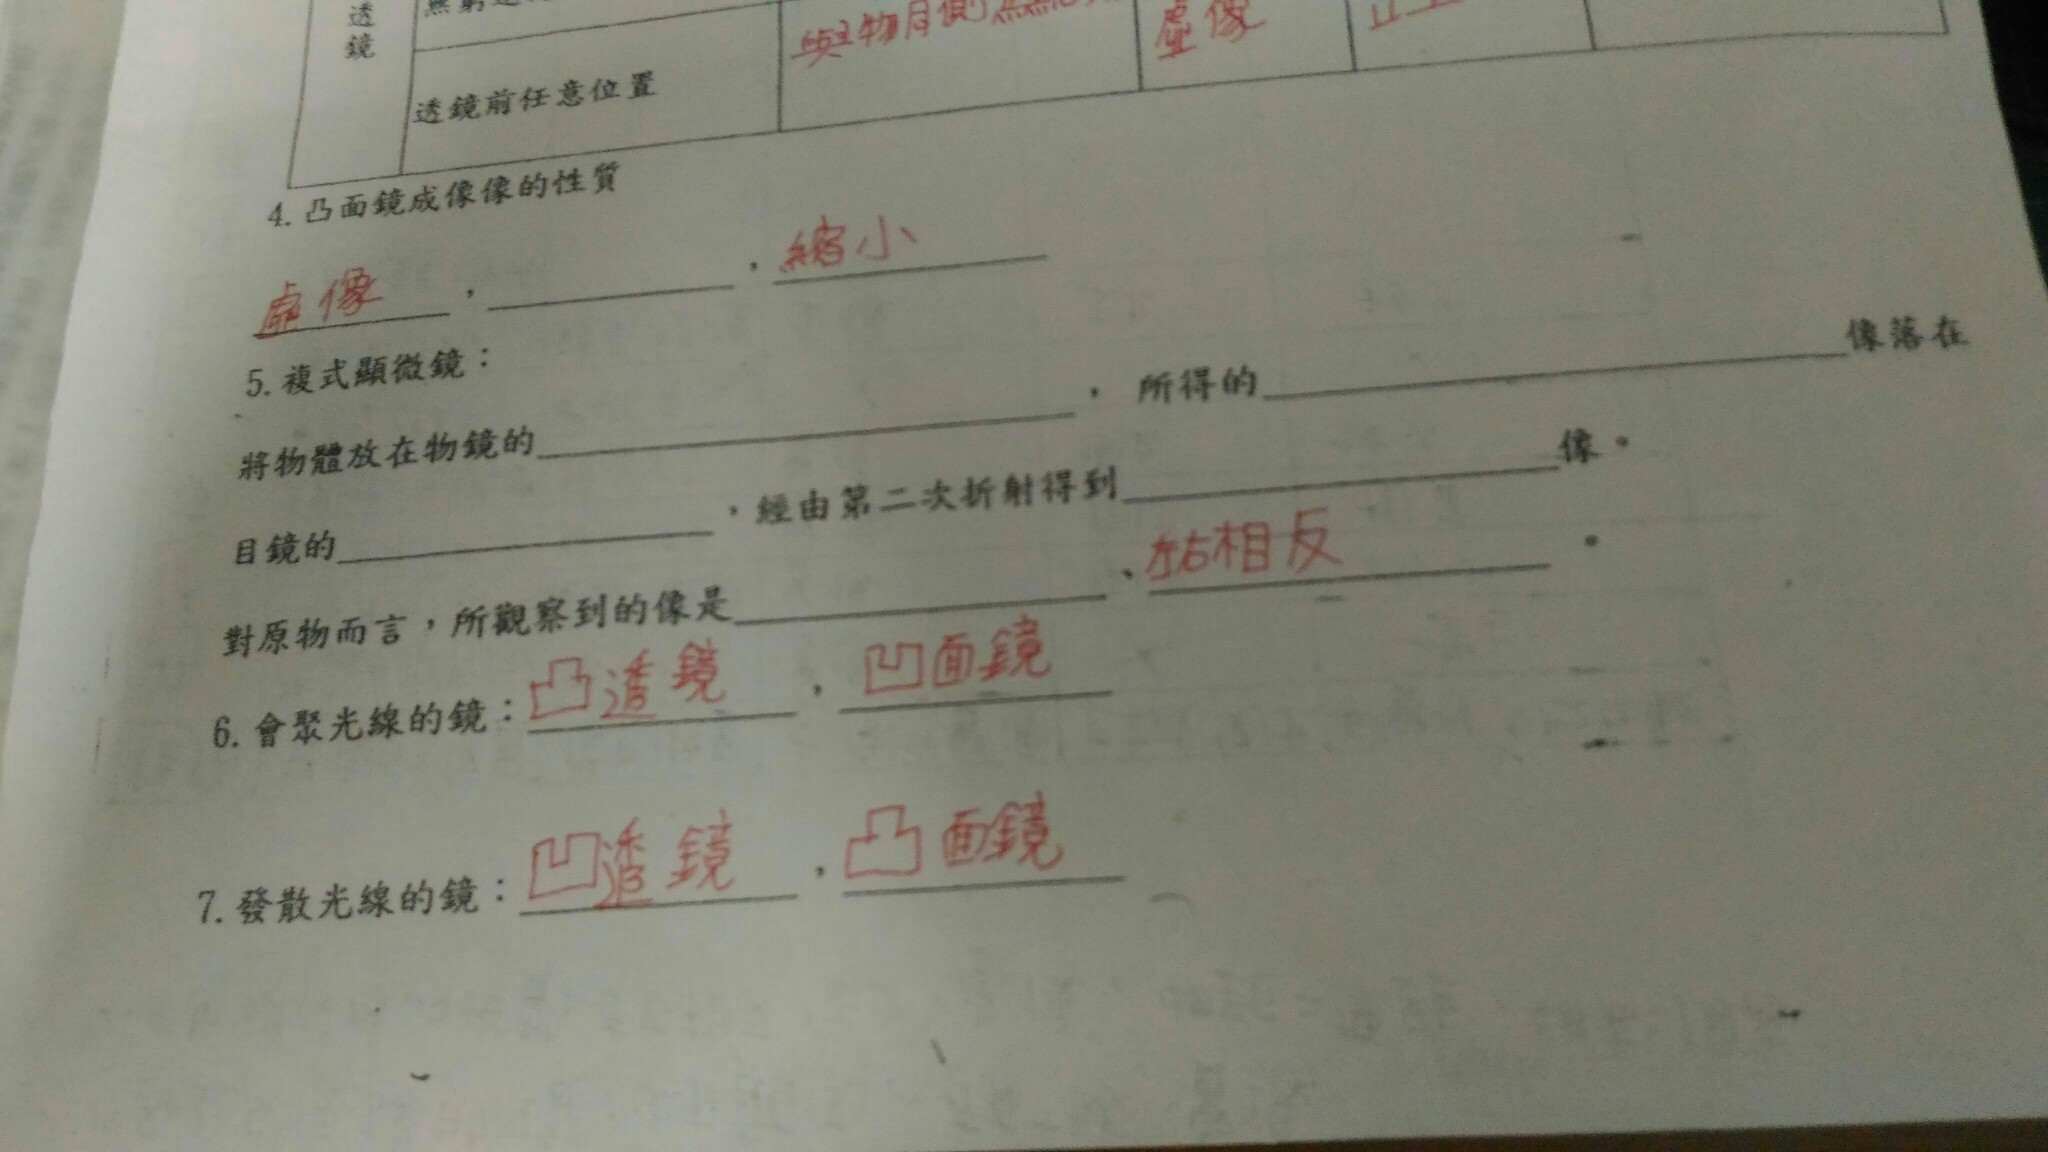 透鏡
與物同側
虛像
透鏡前任意位置
4.凸面鏡成像像的性質
虛像，，縮小
5.複式顯微鏡：
將物體放在物鏡的，所得的像落在
目鏡的，經由第二次折射得到像。
對原物而言，所觀察到的像是、左右相反。
6.會聚光線的鏡：凸透鏡，凹面鏡
7.發散光線的鏡：凹透鏡，凸面鏡